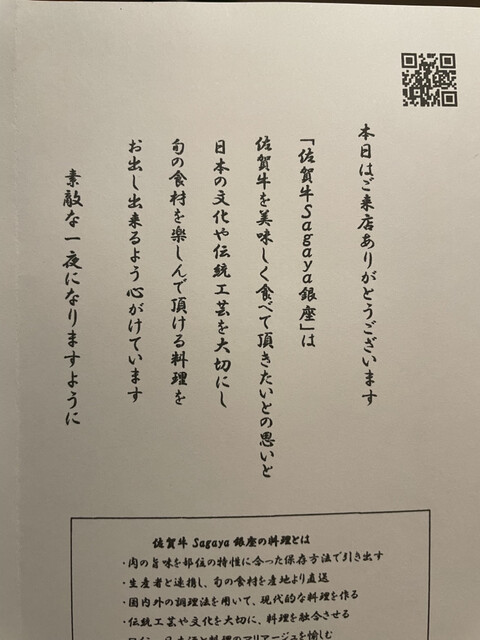 本日はご来店ありがとうございます
「佐賀牛Sagaya銀座」は
佐賀牛を美味しく食べて頂きたいとの思いと
日本の文化や伝統工芸を大切にし
旬の食材を楽しんで頂ける料理を
お出し出来るよう心がけています
素敵な一夜になりますように
佐賀牛 Sagaya 銀座の料理とは
・肉の旨味を部位の特性に合った保存方法で引き出す
・生産者と連携し、旬の食材を産地より直送
・国内外の調理法を用いて、現代的な料理を作る
・伝統工芸や文化を大切に、料理を融合させる
・ワイン、日本酒と料理のマリアージュを愉しむ